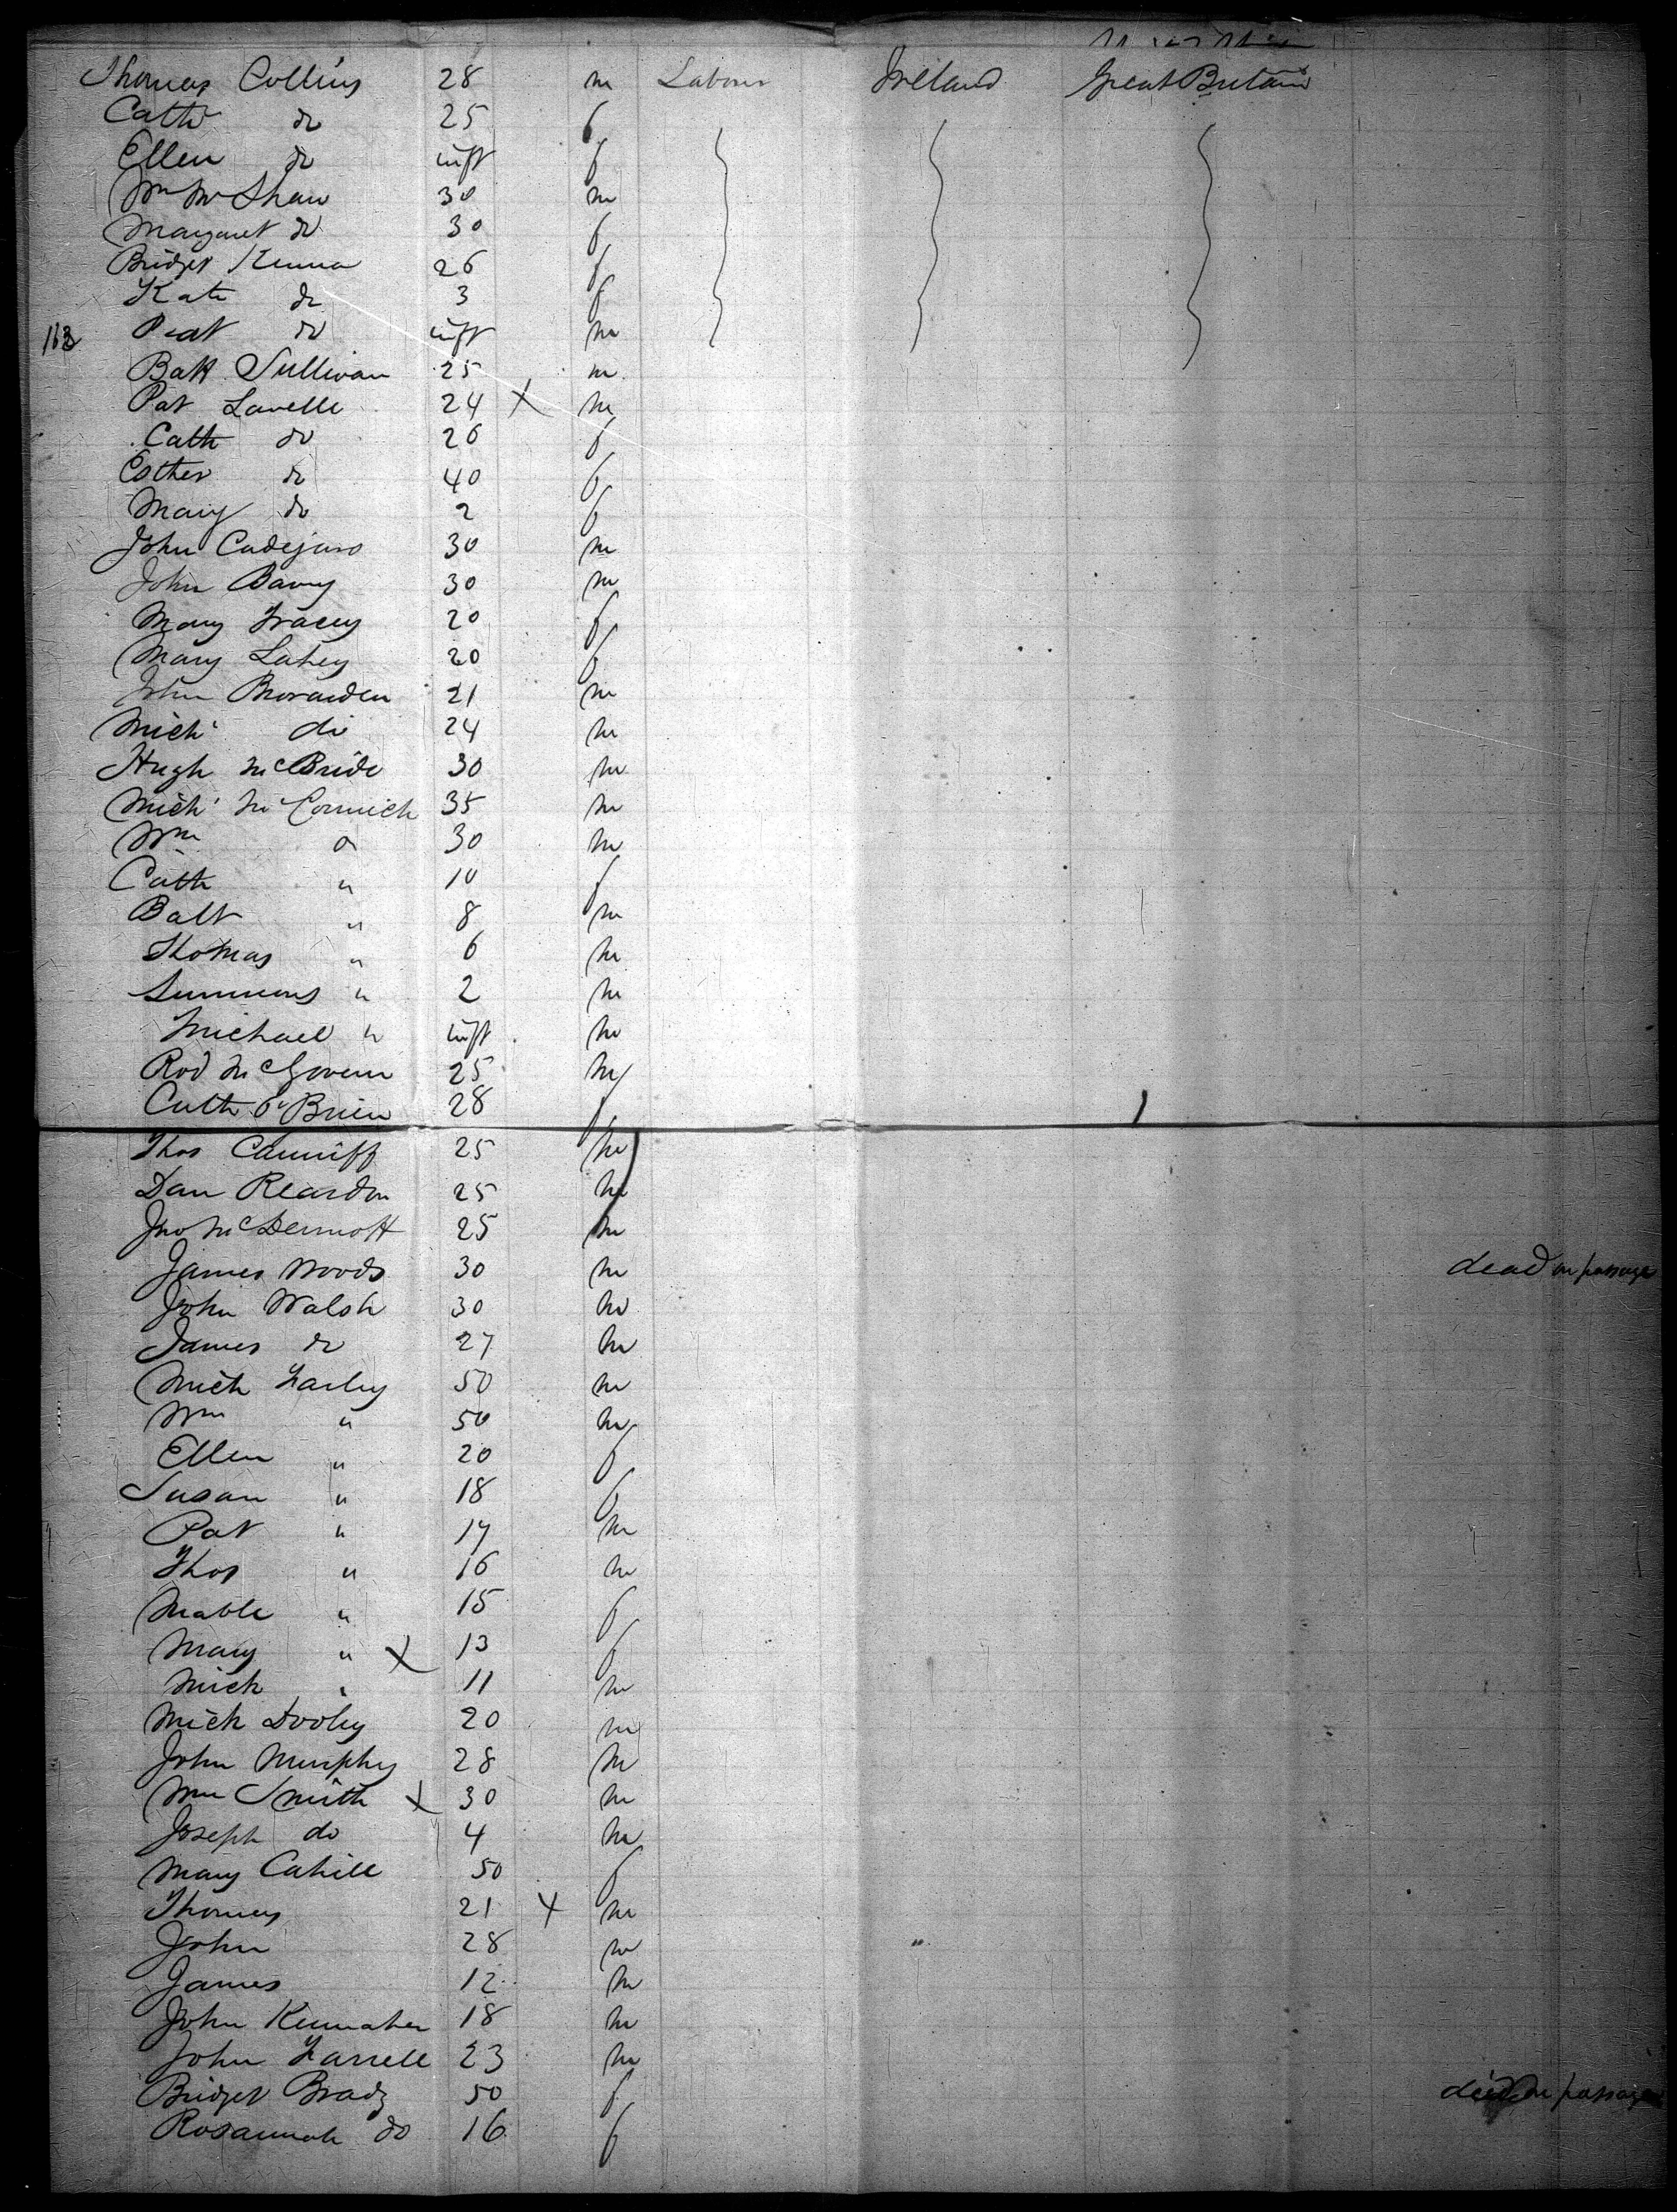 Thomas Collins 28 m Labour Ireland Great Britain
Cath do 25 f
Ellen do inft f
Wm McShaw 30 m
Margaret do 30 f
Bridget Kenna 26 f
Kate do 3 f
Peat do inft m
Batt Sullivan 25 m
Pat Lavelle 24 X m
Cath do 26 f
Esther do 40 f
Mary do 2 f
John 30 m
John Barry 30 m
Mary Tracey 20 f
Mary Lahey 20 f
John 21 m
Mich do 24 m
Hugh McBride 30 m
Mich McCormick 35 m
Wm " 30 m
Cath " 10 f
Batt " 8 m
Thomas " 6 m
Summons " 2 m
Michael " inft m
Rod McGovern 25 m
Cath O'Brien 28 f
Thos Canniff 25 m
Dan Reardon 25 m
Jno McDermott 25 m
James Woods 30 m dead on passage
John Walsh 30 m
James do 27 m
Mich Farley 50 m
Wm " 50 m
Ellen " 20 f
Susan " 18 f
Pat " 17 m
Thos " 16 m
Mable " 15 f
Mary " X 13 f
Mick " 11 m
Mich Dooley 20 m
John Murphy 28 m
Wm Smith X 30 m
Joseph do 4 m
Mary Cahill 50 f
Thomas 21 X m
John 28 m
James 12 m
John 18 m
John Farrell 23 m
Bridget Brady 50 f died on passage
Rosannah do 16 f